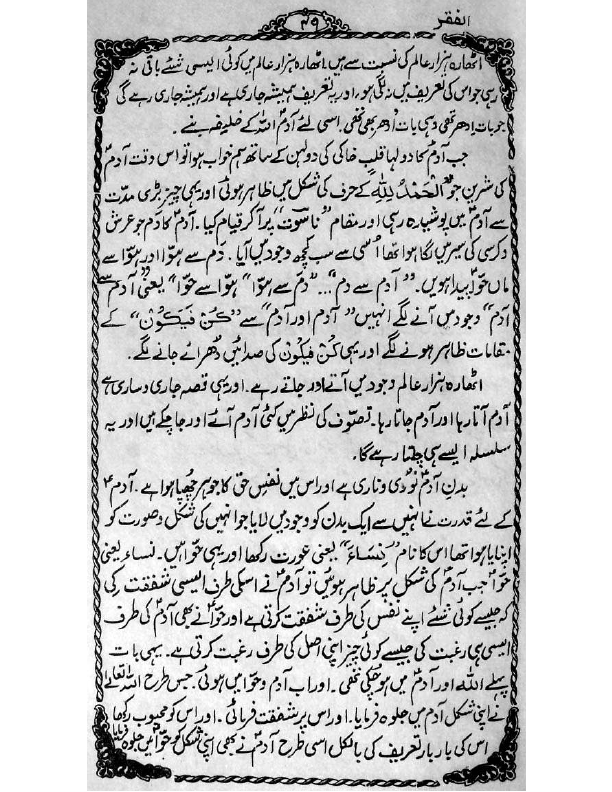 الفقر
۴۹
اٹھارہ ہزار عالم کی نسبت سے ہیں۔ اٹھارہ ہزار عالم میں کوئی ایسی شئے باقی نہ
رہی جو اس کی تعریف میں نہ لگی ہو، اور یہ تعریف ہمیشہ جاری ہے اور ہمیشہ جاری رہے گی
جو بات اِدھر تھی وہی بات اُدھر بھی تھی، اسی لئے آدمؑ اللہ کے خلیفہ بنے۔
جب آدمؑ کا دولہا قلب خاکی کی دولہن کے ساتھ ہم خواب ہوا تو اس وقت آدمؑ
کی شرین جو "اَلْحَمْدُ لِلّٰہِ" کے حرف کی شکل میں ظاہر ہوئی اور یہی چیز بڑی مدت
سے آدمؑ میں پوشیدہ رہی اور مقام "ناسوت" پر آکر قیام کیا۔ آدمؑ کا دَم جو عرش
و کرسی کی سیر میں لگا ہوا تھا اُسی سے سب کچھ وجود میں آیا۔ دَم سے ہوّا اور ہوّا سے
ماں حوّا پیدا ہویں۔ "آدم سے دم"... "دم سے ہوّا" ہوّا سے حوّا" یعنی "آدم سے
آدم" وجود میں آنے لگے انہیں "آدم اور آدم" سے "کُنْ فَیَکُوْن" کے
مقامات ظاہر ہونے لگے اور یہی کُنْ فَیَکُوْن کی صدائیں دُھرائے جانے لگے۔
اٹھارہ ہزار عالم وجود میں آتے اور جاتے رہے۔ اور یہی قصہ جاری و ساری ہے
آدم آتا رہا اور آدم جاتا رہا۔ تصوّف کی نظر میں کئی آدم آئے اور جا چکے ہیں اور یہ
سلسلہ ایسے ہی چلتا رہے گا۔
بدن آدمؑ نوری و ناری ہے اور اس میں نفس حق کا جوہر چھپا ہوا ہے۔ آدمؑ
کے لئے قدرت نے انہیں سے ایک بدن کو وجود میں لایا جو انہیں کی شکل و صورت کو
اپنایا ہوا تھا اس کا نام "نِسَاءَ" یعنی عورت رکھا اور یہی حوّا ہیں۔ نساء یعنی
حوّا جب آدمؑ کی شکل پر ظاہر ہوئیں تو آدمؑ نے اسکی طرف ایسی شفقت کی
کہ جیسے کوئی شئے اپنے نفس کی طرف شفقت کرتی ہے اور حوّا نے بھی آدمؑ کی طرف
ایسی ہی رغبت کی جیسے کوئی چیز اپنی اصل کی طرف رغبت کرتی ہے۔ یہی بات
پہلے اللہ اور آدمؑ میں ہو چکی تھی۔ اور اب آدمؑ و حوّا میں ہوئی۔ جس طرح اللہ تعالیٰ
نے اپنی شکل آدم میں جلوہ فرمایا۔ اور اس پر شفقت فرمائی۔ اور اس کو محبوب رکھا
اس کی بار بار تعریف کی بالکل اسی طرح آدمؑ نے بھی اپنی شکل کو حوّا میں جلوہ فرمایا